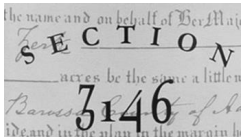 the name and on behalf of Her Maj
SECTION
acres be the same a little m
3146
Barossa County of A
ide and in the plan in the margin h